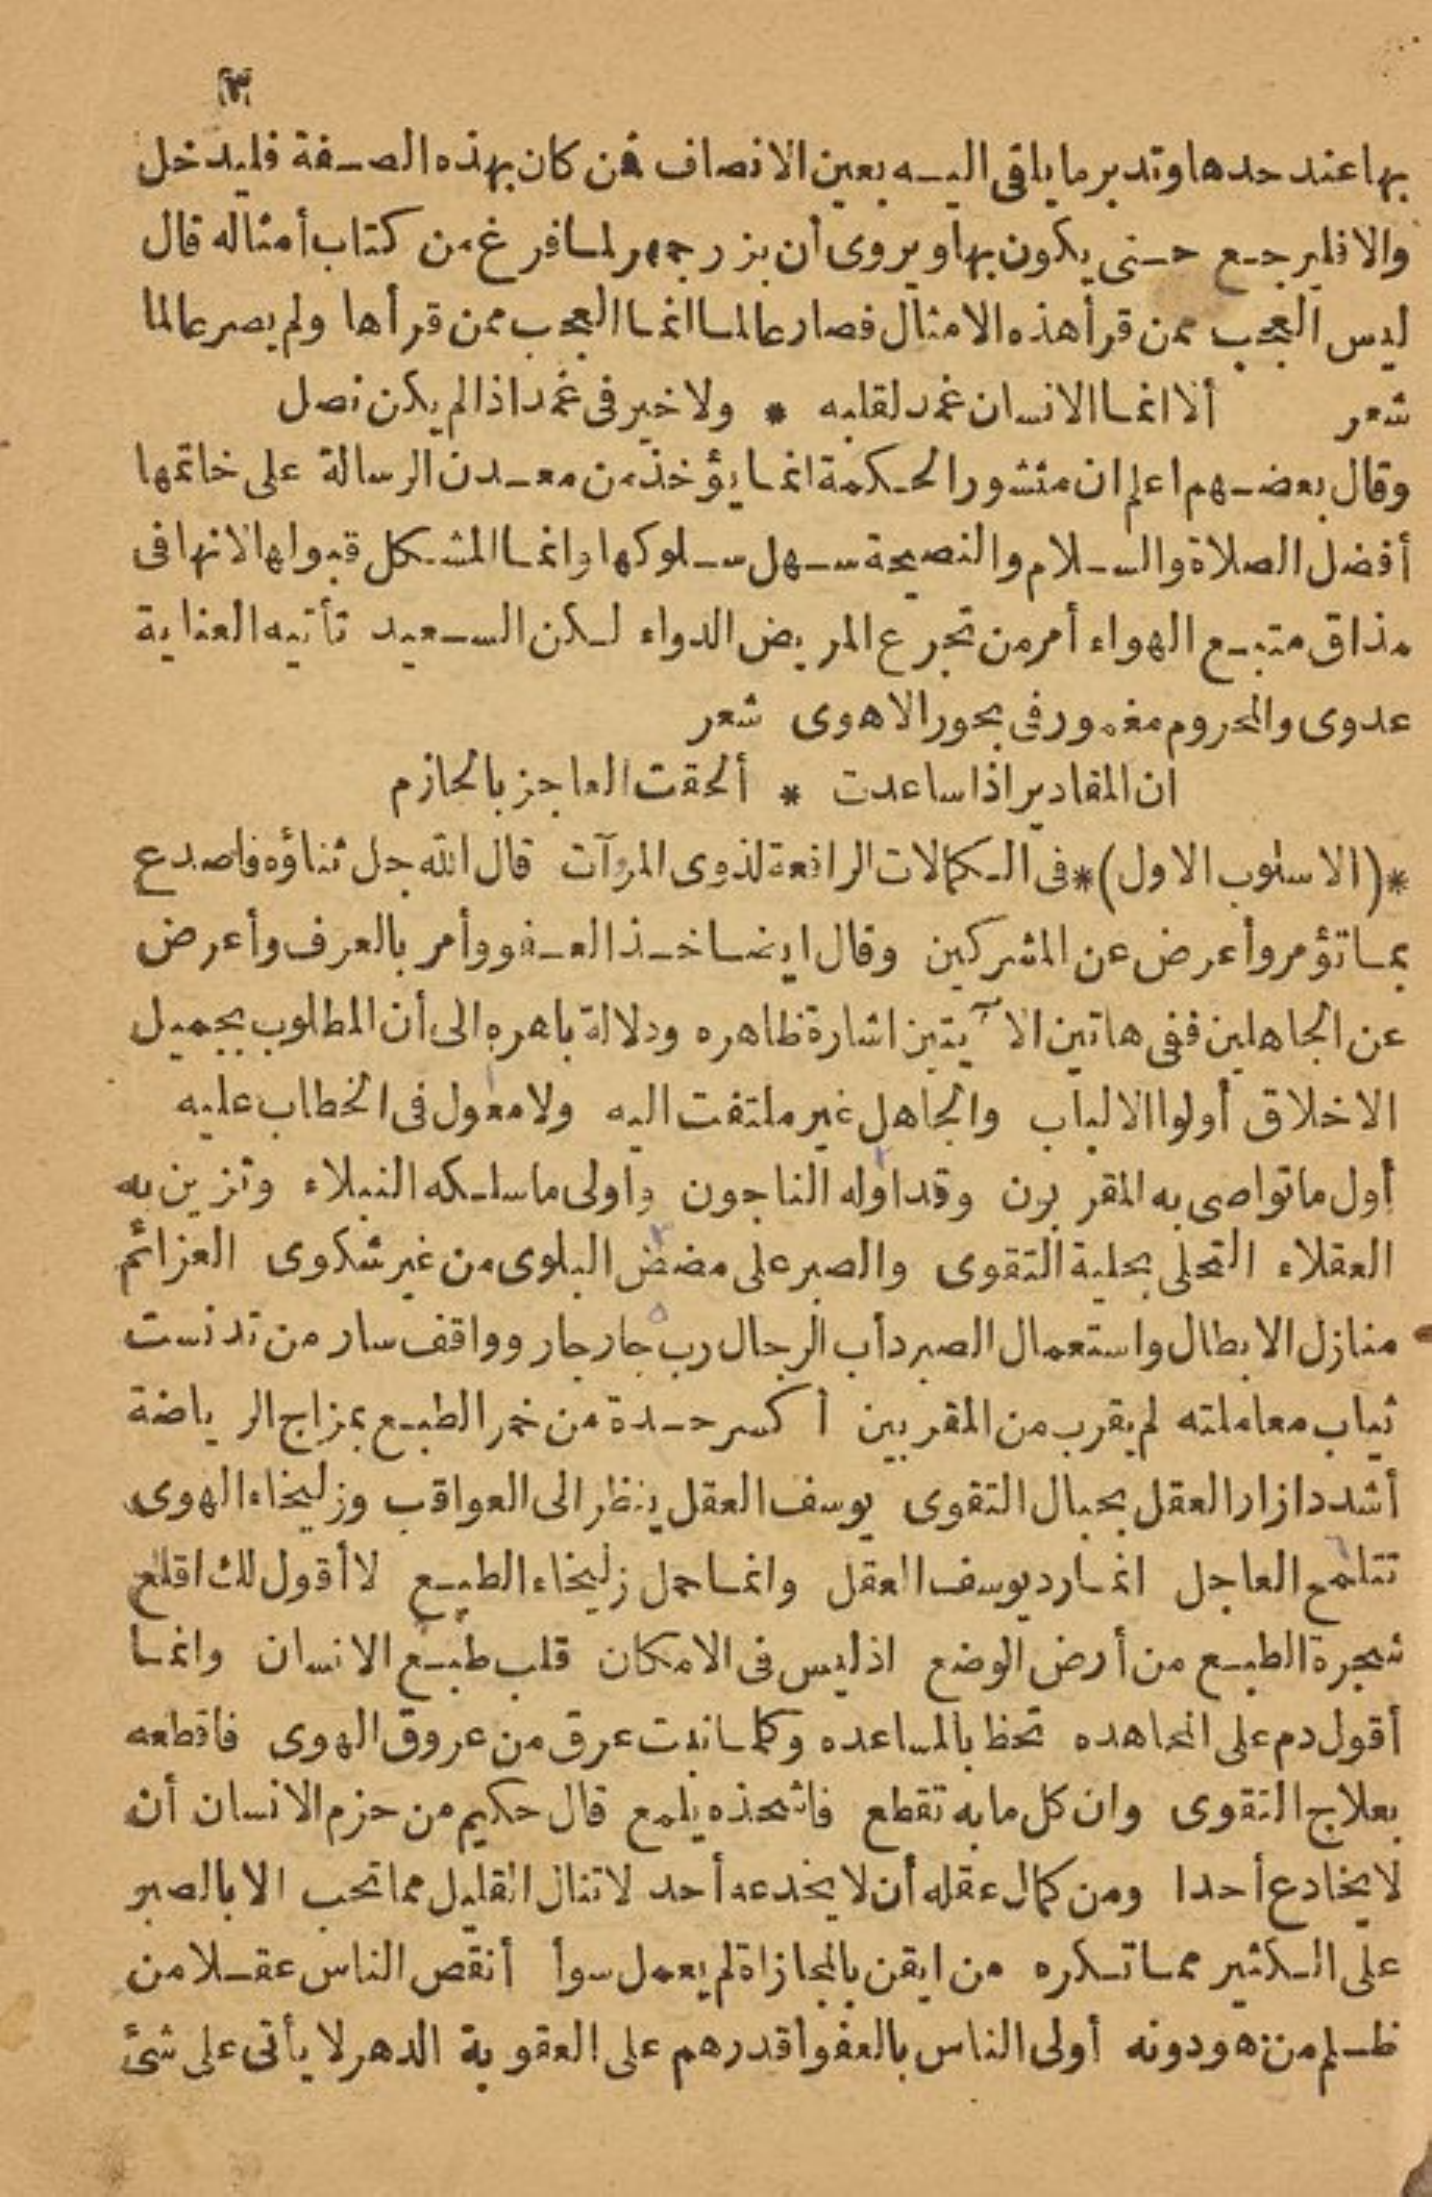 (٣)
بها عند حدها وتدبر ما يلقى اليه بعين الانصاف فمن كان بهذه الصفة فليدخل
والا فليرجع حتى يكون بها ويروى أن بزرجمهر لما فرغ من كتاب أمثاله قال
ليس العجب ممن قرأ هذه الامثال فصار عالما انما العجب ممن قرأها ولم يصر عالما
شعر ألا انما الانسان غمد لقلبه * ولا خير فى غمد اذا لم يكن نصل
وقال بعضهم اعلم ان منثور الحكمة انما يؤخذ من معدن الرسالة على خاتمها
أفضل الصلاة والسلام والنصيحة سهل سلوكها وانما المشكل قبولها لانها فى
مذاق متبع الهواء أمر من تجرع المريض الدواء لكن السعيد تأتيه العناية
عدوى والمحروم مغمور فى بحور الاهوى شعر
ان المقادير اذا ساعدت * ألحقت العاجز بالحازم
*(الاسلوب الاول)* فى الكمالات الرافعة لذوى المروآت قال الله جل ثناؤه فاصدع
بما تؤمر وأعرض عن المشركين وقال ايضا خذ العفو وأمر بالعرف وأعرض
عن الجاهلين ففى هاتين الآيتين اشارة ظاهره ودلالة باهره الى أن المطلوب بجميل
الاخلاق أولوا الالباب والجاهل غير ملتفت اليه ولا معول فى الخطاب عليه
أول ما تواصى به المقربون وقد اوله الناجون واولى ما سلكه النبلاء وتزين به
العقلاء التحلى بحلية التقوى والصبر على مضض البلوى من غير شكوى العزائم
منازل الابطال واستعمال الصبر دأب الرجال رب جار جار وواقف سار من تدنست
ثياب معاملته لم يقرب من المقربين أكسر حدة من خمر الطبع بمزاج الرياضة
أشدد ازار العقل بحبال التقوى يوسف العقل ينظر الى العواقب وزليخاء الهوى
تتلمح العاجل انما رد يوسف العقل وانما حمل زليخاء الطبع لا أقول لك اقلع
شجرة الطبع من أرض الوضع اذ ليس فى الامكان قلب طبع الانسان وانما
أقول دم على المجاهده تحظ بالمساعده وكلما نبت عرق من عروق الهوى فاقطعه
بعلاج التقوى وان كل ما به تقطع فاشحذه يلمع قال حكيم من حزم الانسان أن
لا يخادع أحدا ومن كمال عقله أن لا يخدعه أحد لا تنال القليل مما تحب الا بالصبر
على الكثير مما تكره من ايقن بالمجازاة لم يعمل سوأ أنقص الناس عقلا من
ظلم من هو دونه أولى الناس بالعفو أقدرهم على العقوبة الدهر لا يأتى على شئ